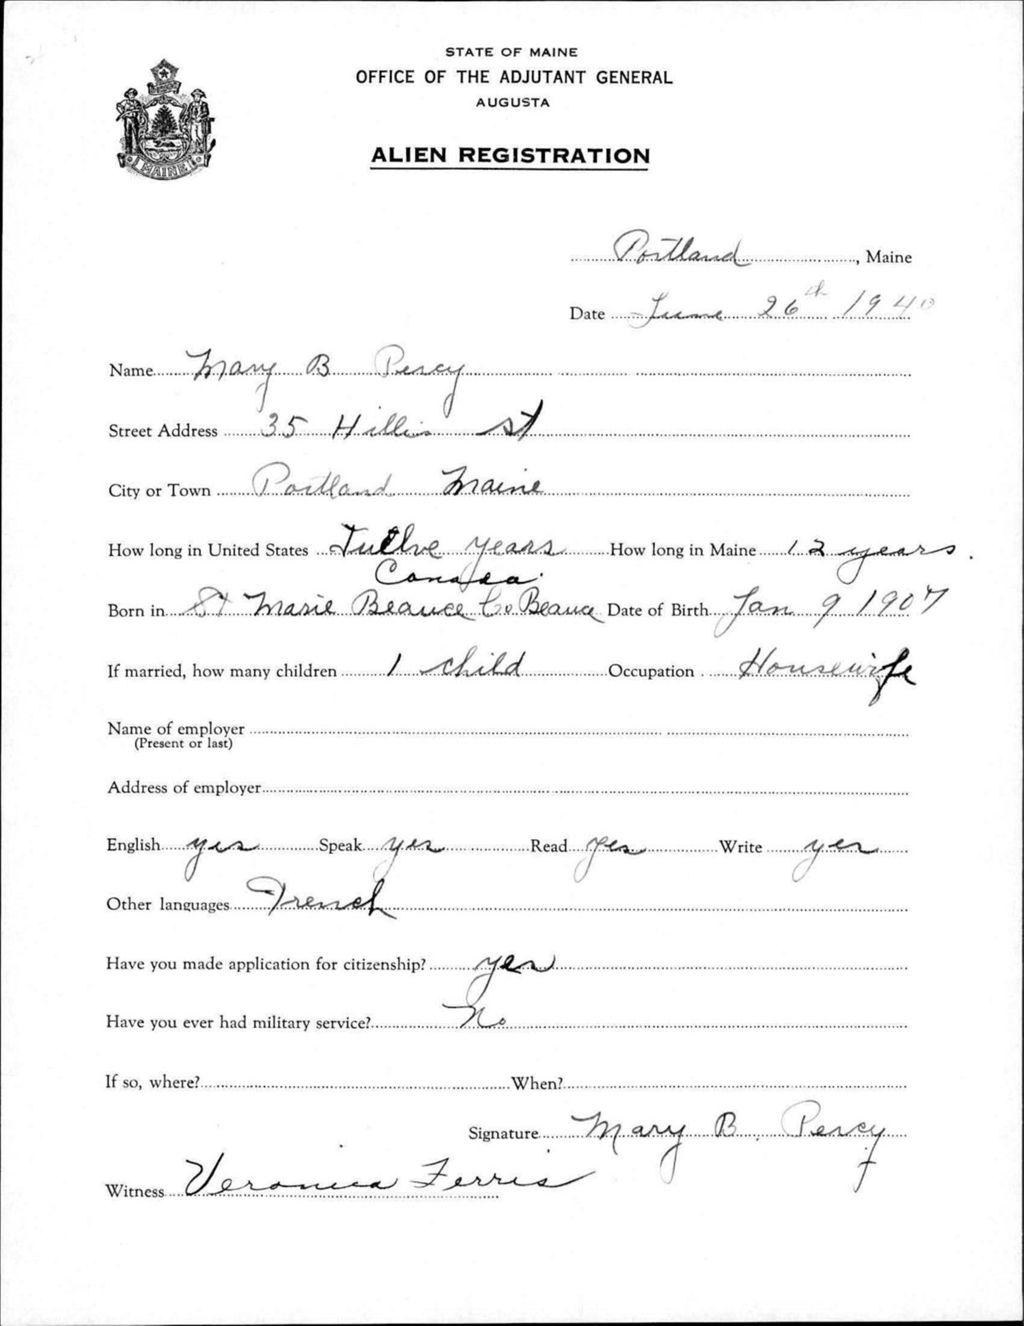 STATE OF MAINE
OFFICE OF THE ADJUTANT GENERAL
AUGUSTA
ALIEN REGISTRATION
MAINE
Portland, Maine
Date June 26th 1940
Name Mary B Percy
Street Address 35 Hillis St
City or Town Portland Maine
How long in United States Twelve years How long in Maine 12 years.
Canada
Born in St Marie Beauce Co Beauce Date of Birth Jan 9 1907
If married, how many children 1 child Occupation Housewife
Name of employer
(Present or last)
Address of employer
English yes Speak yes Read yes Write yes
Other languages French
Have you made application for citizenship? yes
Have you ever had military service? No
If so, where? When?
Signature Mary B. Percy
Witness Veronica Ferris